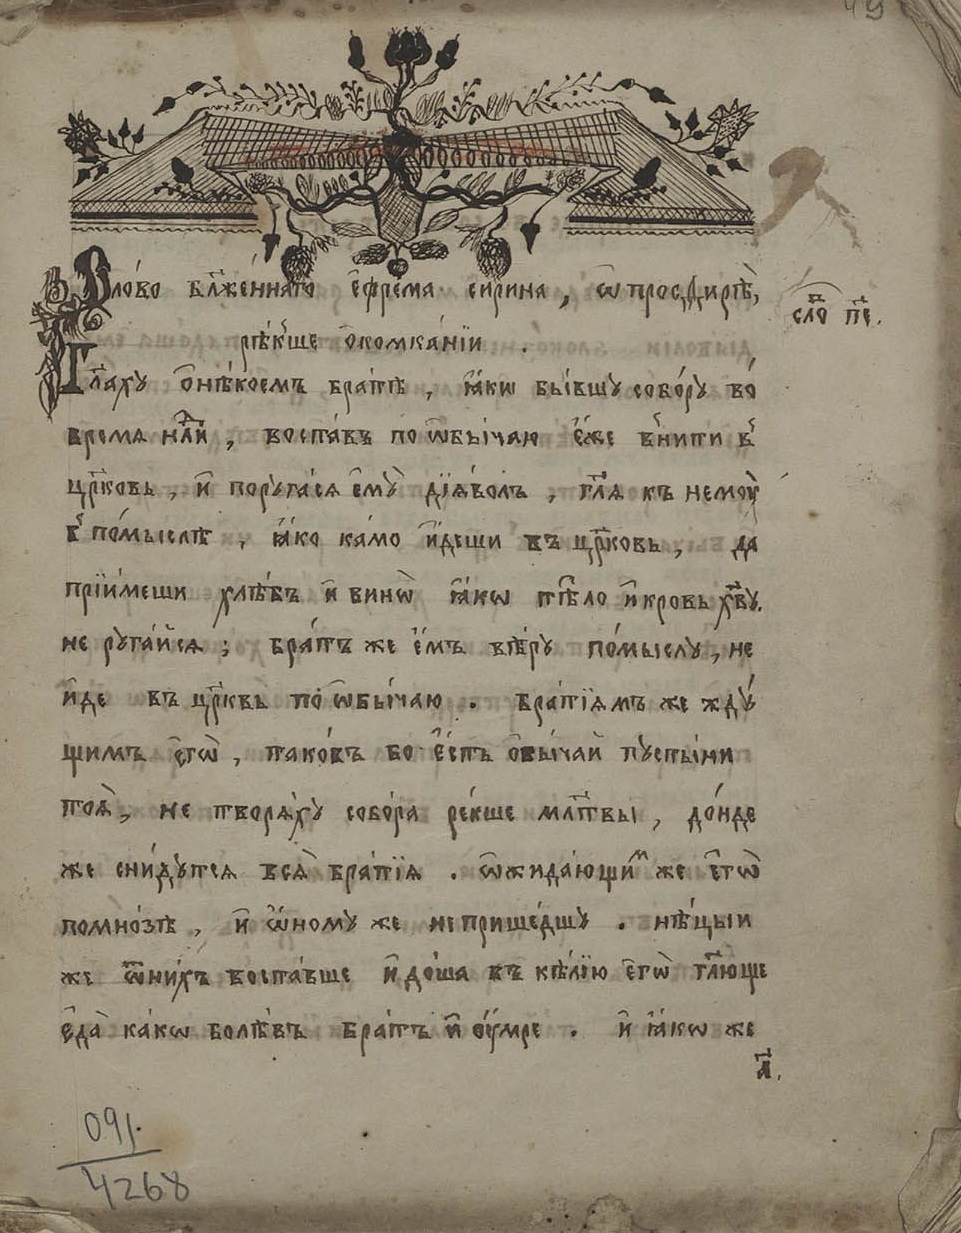 Сло́во бл҃же́ннаго є҆фре́ма си́рина, ѡ҆ просфирѣ̀,
сло́ пе҃.
рѣ́кше ѡ҆комка́нїи.
Гл҃аху ѡ҆нѣ́коемъ бра́тѣ, ꙗ҆́кѡ бы́вшу собо́ру во́
время нлⷣи, воста́въ по ѡ҆бы́чаю є҆́же вни́ти в
цр҃ковь, и҆ поруга́ся є҆му̀ дїа́волъ, гл҃я къ немꙋ̀
в по́мыслѣ, ꙗ҆́ко ка́мо и҆́деши въ цр҃ковь, да
прїи́меши хлѣ́бъ и҆ винѡ̀ ꙗ҆́кѡ тѣ́ло и҆ кровь хв҃у,
не руга́йся; бра́тъ же є҆́мъ вѣ́ру по́мыслу, не
и҆́де въ цр҃квь по ѡ҆бы́чаю. бра́тїямъ же жду́
щимъ є҆гѡ̀, тако́въ бо є҆́сть ѡ҆бы́чай пусты́ни
тоя̀, не творя́ху собо́ра ре́кше млт҃вы, до́нде
же сни́дутся вся̀ бра́тїя. ѡ҆жида́ющимъ же є҆гѡ̀
помно́зѣ, и҆ ѡ҆́ному же не прише́дшу. нѣ́цыи
же ѿни́хъ воста́вше и҆доша въ кѣ́лїю є҆гѡ̀ гл҃юще
є҆да̀ ка́кѡ болѣ́въ бра́тъ и҆ ᲂу҆́мре. и҆ ꙗ҆́кѡ же
а҃.
091
4268